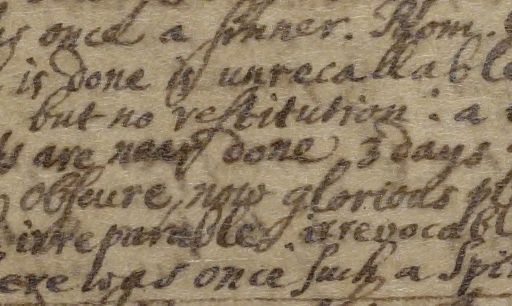 once a sinner. Rom.
is done is unrecallable
but no restitution: a
are neer done 3 days
obscure, now glorious
irreparable, irrevocabl
ere was once such a Spi